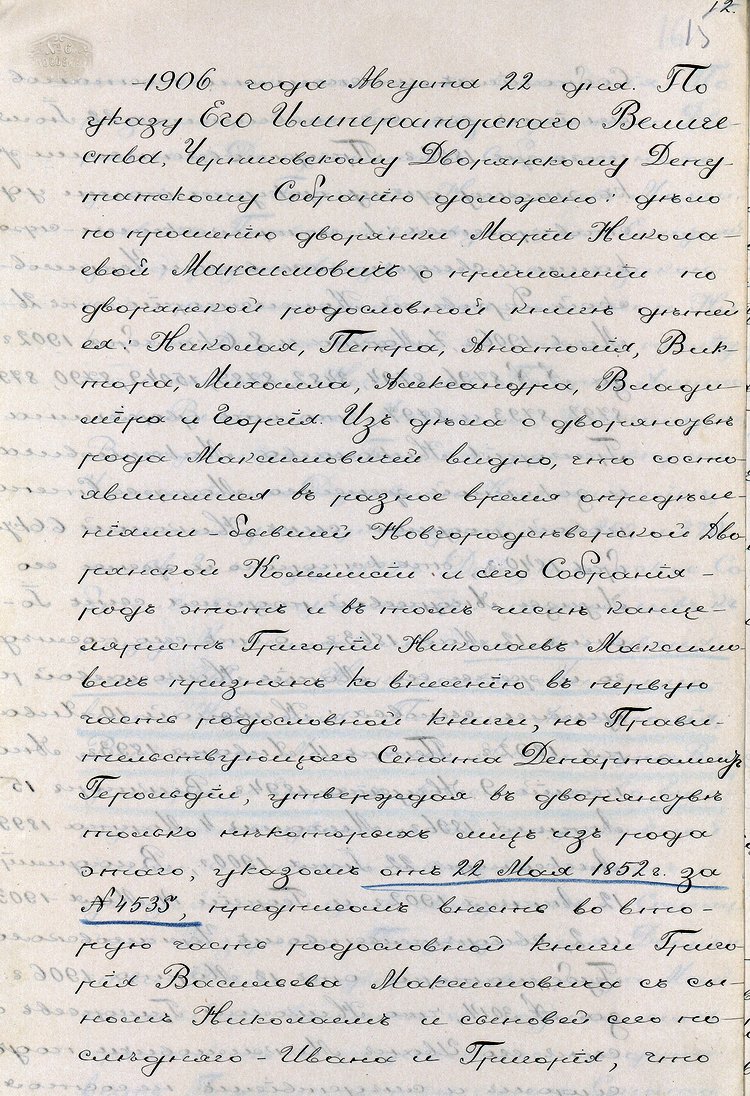 12.
15
1906 года Августа 22 дня. По
указу Его Императорскаго Величе-
ства, Черниговскому Дворянскому Депу
татскому Собранію доложено: дѣло
по прошенію дворянки Маріи Никола-
евой Максимовичъ о причисленіи по
дворянской родословной книгѣ дѣтей
ея: Николая, Петра, Анатолія, Вик-
тора, Михаила, Александра, Влади-
міра и Георгія. Изъ дѣла о дворянствѣ
рода Максимовичей видно, что состо-
явшимися въ разное время опредѣле-
ніями - бывшей Новгородсѣверской Дво
рянской Коммисіи и сего Собранія -
родъ этотъ и въ томъ числѣ канце-
ляристъ Григорій Николаевъ Максимо-
вичъ признанъ ко внесенію въ первую
часть родословной книги, но Прави-
тельствующаго Сената Департаментъ
Герольдіи, утверждая въ дворянствѣ
только нѣкоторыхъ лицъ изъ рода
этаго, указомъ отъ 22 Мая 1852 г. за
№ 4535, предписалъ внесть во вто-
рую часть родословной книги Григо-
рія Васильева Максимовича съ сы-
номъ Николаемъ и сыновей сего по-
слѣдняго - Ивана и Григорія, что